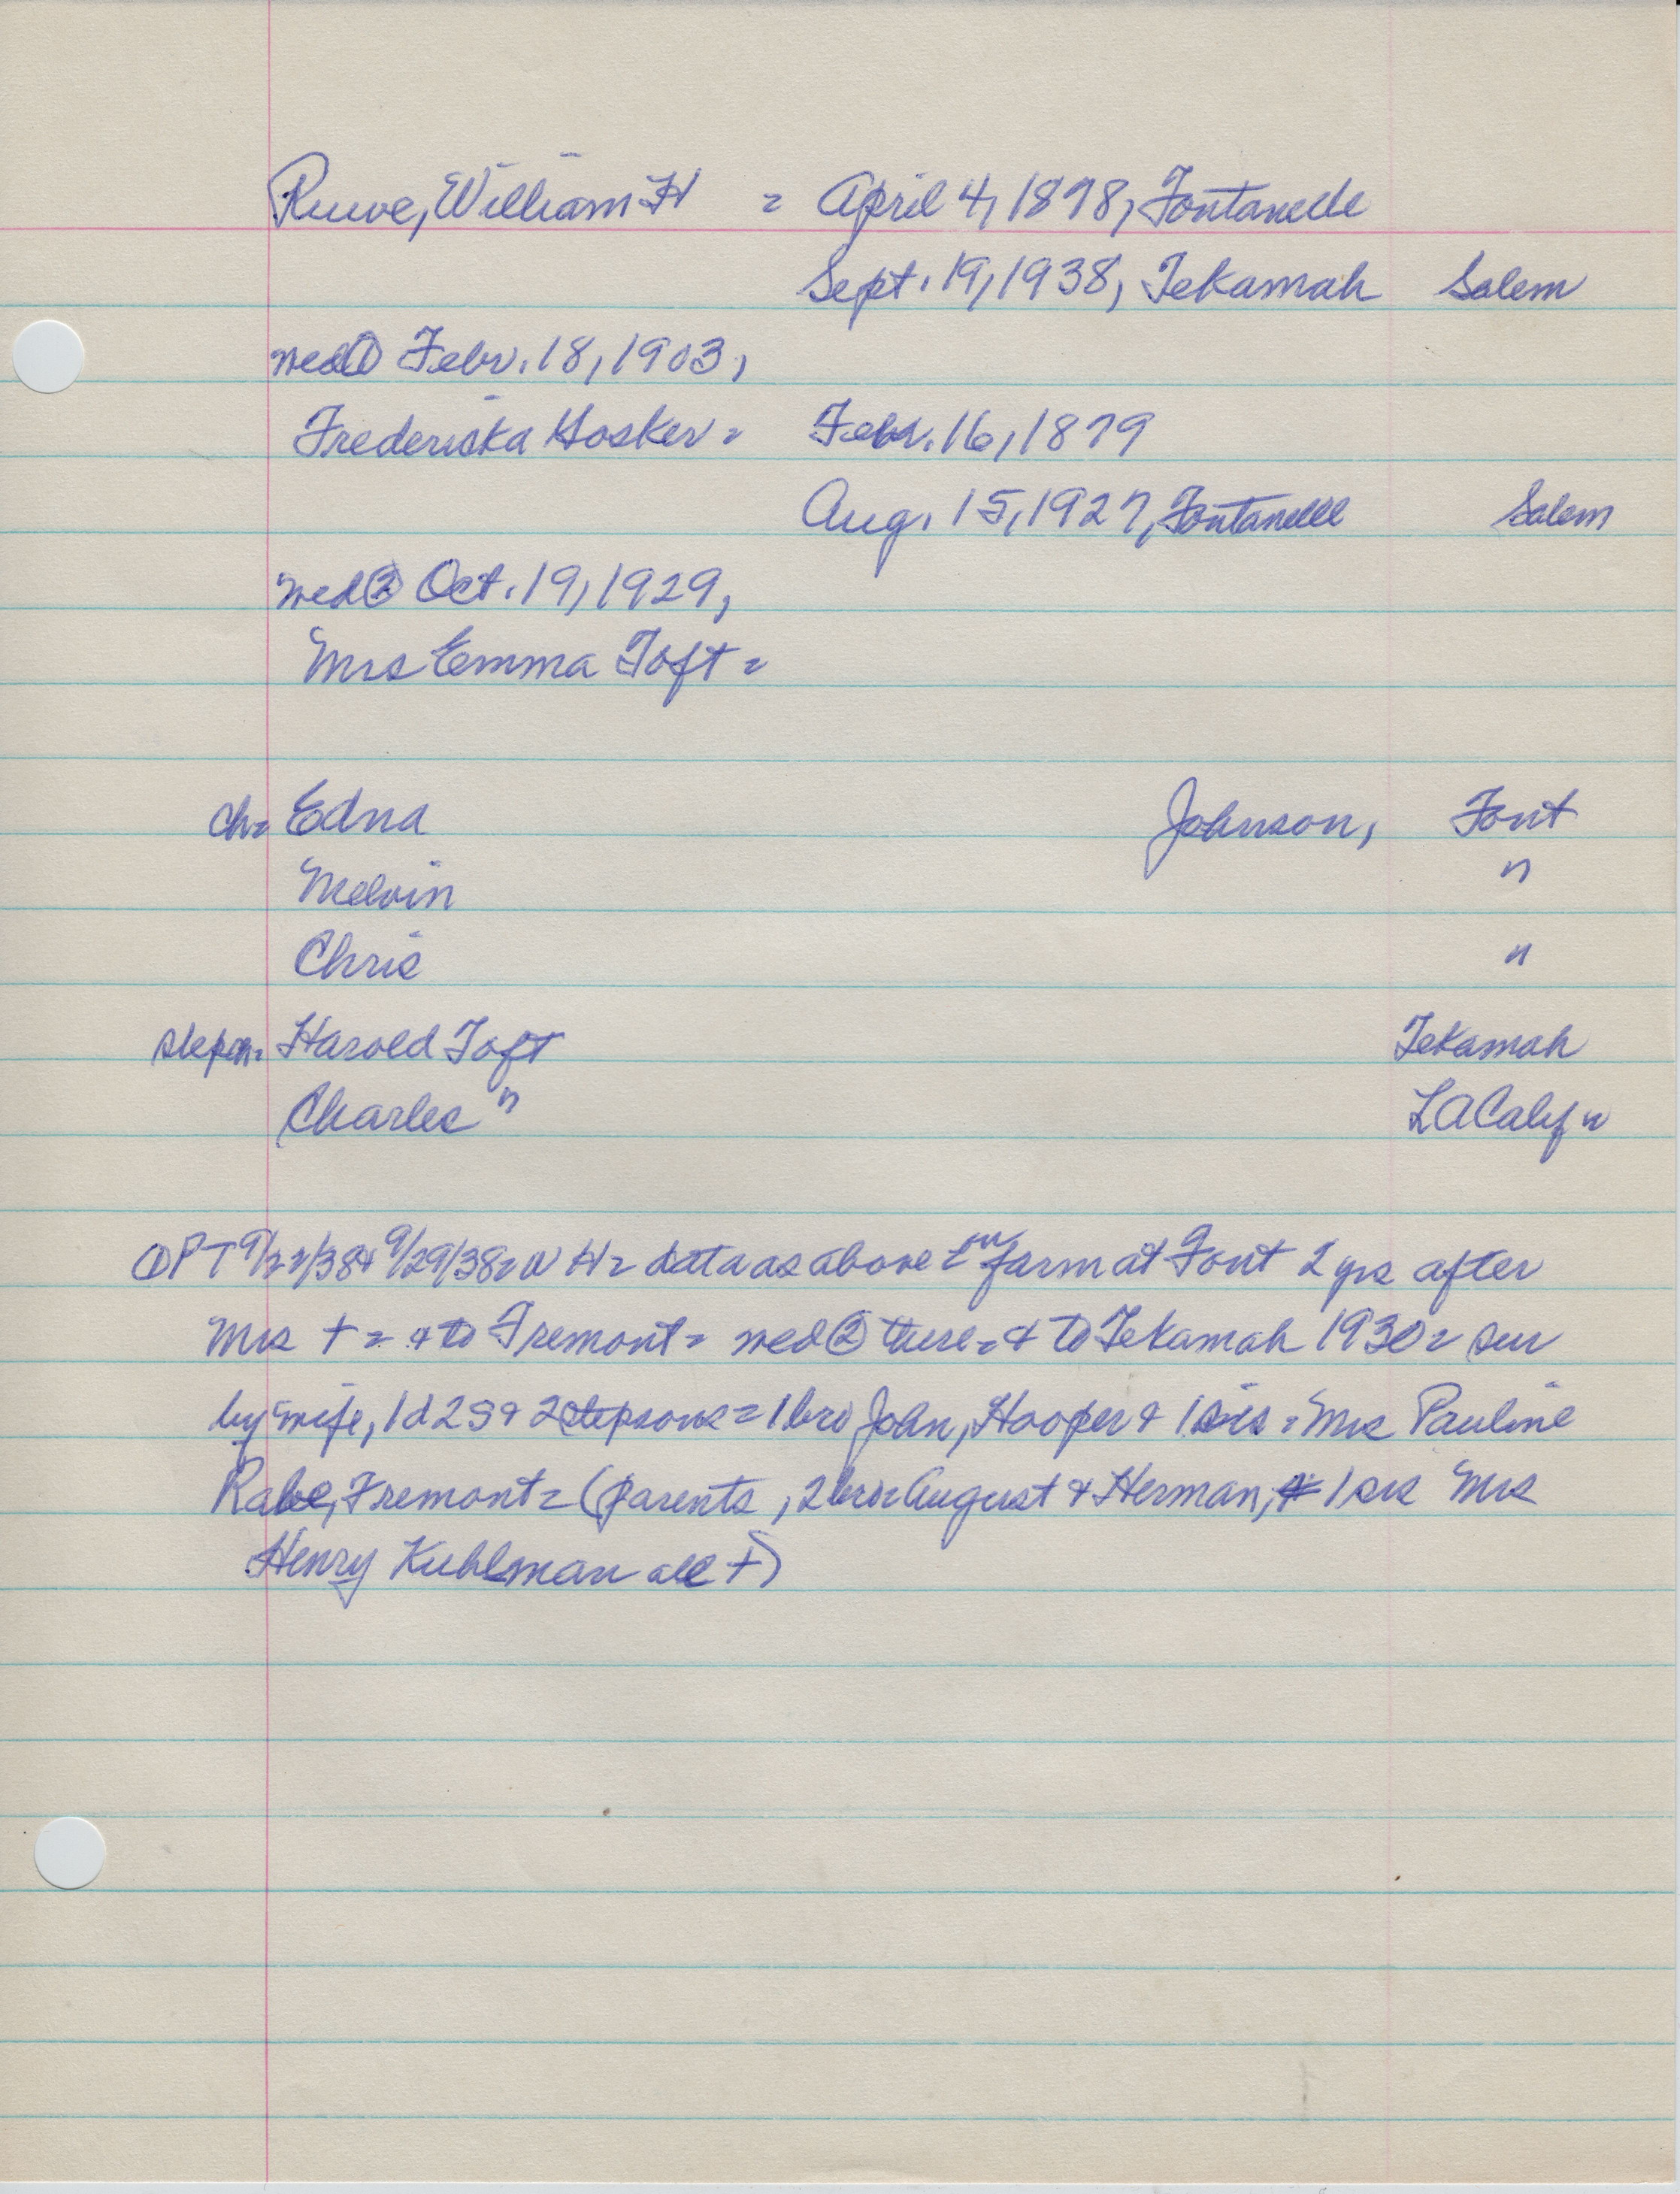 Ruwe, William H = April 4, 1878, Fontanelle
Sept. 19, 1938, Tekamah Salem
wed① Febr. 18, 1903,
Frederiska Hosker = Febr. 16, 1879
Aug. 15, 1927, Fontanelle Salem
wed② Oct. 19, 1929,
Mrs Emma Toft =
ch= Edna Johnson, Font
Melvin "
Chris "
Harold Toft Tekamah
Charles " LA Calif
9/29/38 = W H = data as above = on farm at Font 2 yrs after
Mrs + = & to Fremont = wed② there = & to Tekamah 1930 = sur
by wife, 1d 2s & 2 stepsons = 1 bro John, Hooper & 1 sis = Mrs Pauline
Rabe, Fremont = (parents, 2 bro = August & Herman, 1 sis Mrs
Henry Kuhlman all +)